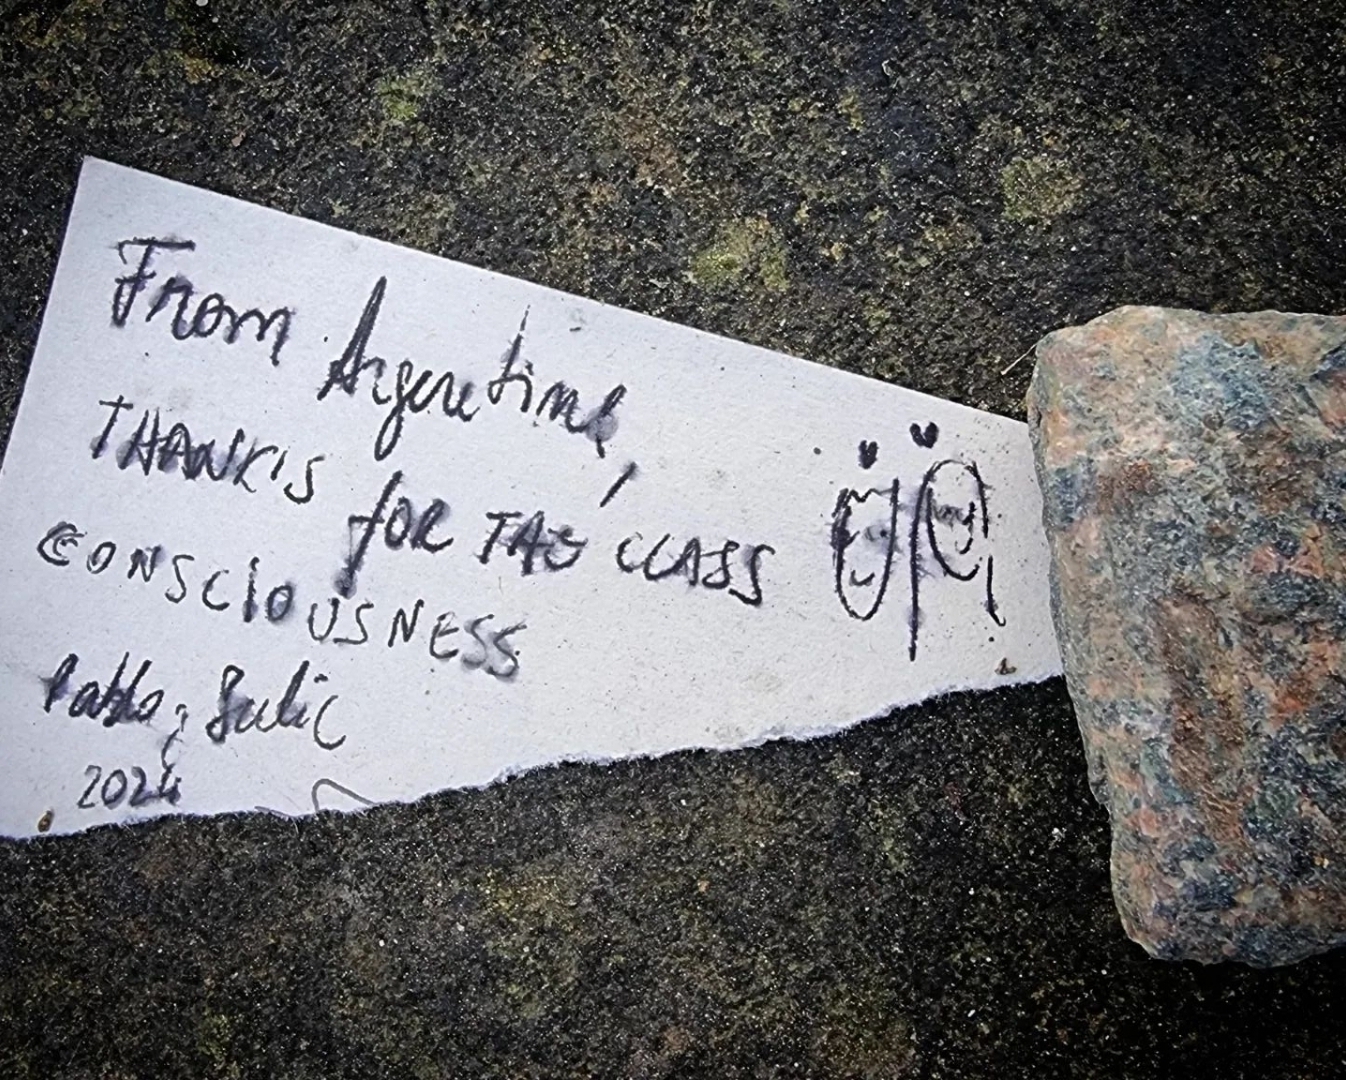 From Argentina,
THANK'S for TAE CLASS
CONSCIOUSNESS
Pablo, Julic
2024